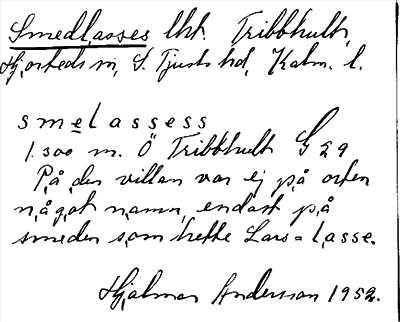 Smedlasses lht. Tribbhult,
Hjorteds sn, S. Tjusts hd, Kalm. l.
smelassess
1.300 m. Ö Tribbhult G 29
På den villan var ej på orten
något namn, endast på
smeden som hette Lars = Lasse.
Hjalmar Andersson 1952.